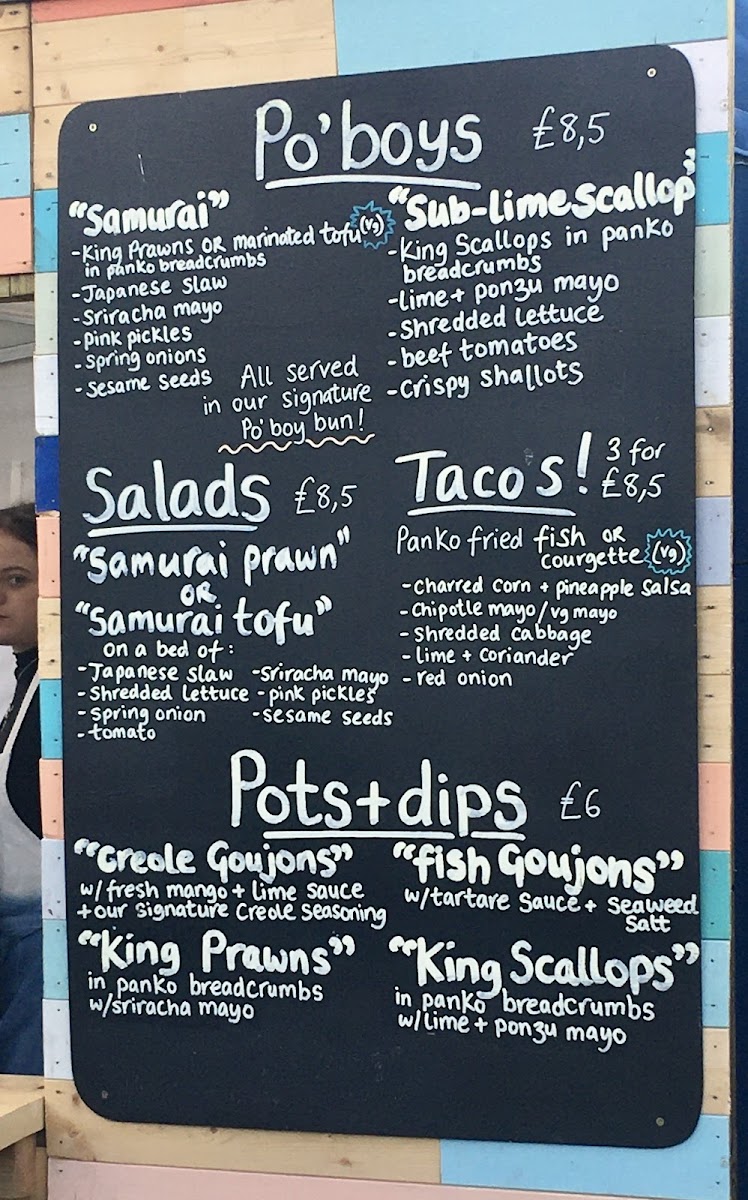 Po'boys £8,5
"Samurai"
-King Prawns OR marinated tofu (vg)
in panko breadcrumbs
-Japanese slaw
-Sriracha mayo
-pink pickles
-spring onions
-sesame seeds
"Sub-lime scallop"
-King Scallops in panko
breadcrumbs
-lime + ponzu mayo
-Shredded lettuce
-beef tomatoes
-crispy shallots
All served
in our signature
Po'boy bun!
Salads £8,5
"Samurai prawn"
OR
"Samurai tofu"
on a bed of:
-Japanese slaw
-Shredded lettuce
-spring onion
-tomato
-Sriracha mayo
-pink pickles
-sesame seeds
Taco's! 3 for
£8,5
Panko fried fish OR
courgette (vg)
-Charred corn + pineapple salsa
-Chipotle mayo/vg mayo
-Shredded cabbage
-lime + coriander
-red onion
Pots+dips £6
"Creole Goujons"
w/fresh mango + lime sauce
+our signature Creole seasoning
"fish Goujons"
w/tartare sauce + seaweed
salt
"King Prawns"
in panko breadcrumbs
w/sriracha mayo
"King Scallops"
in panko breadcrumbs
w/lime + ponzu mayo